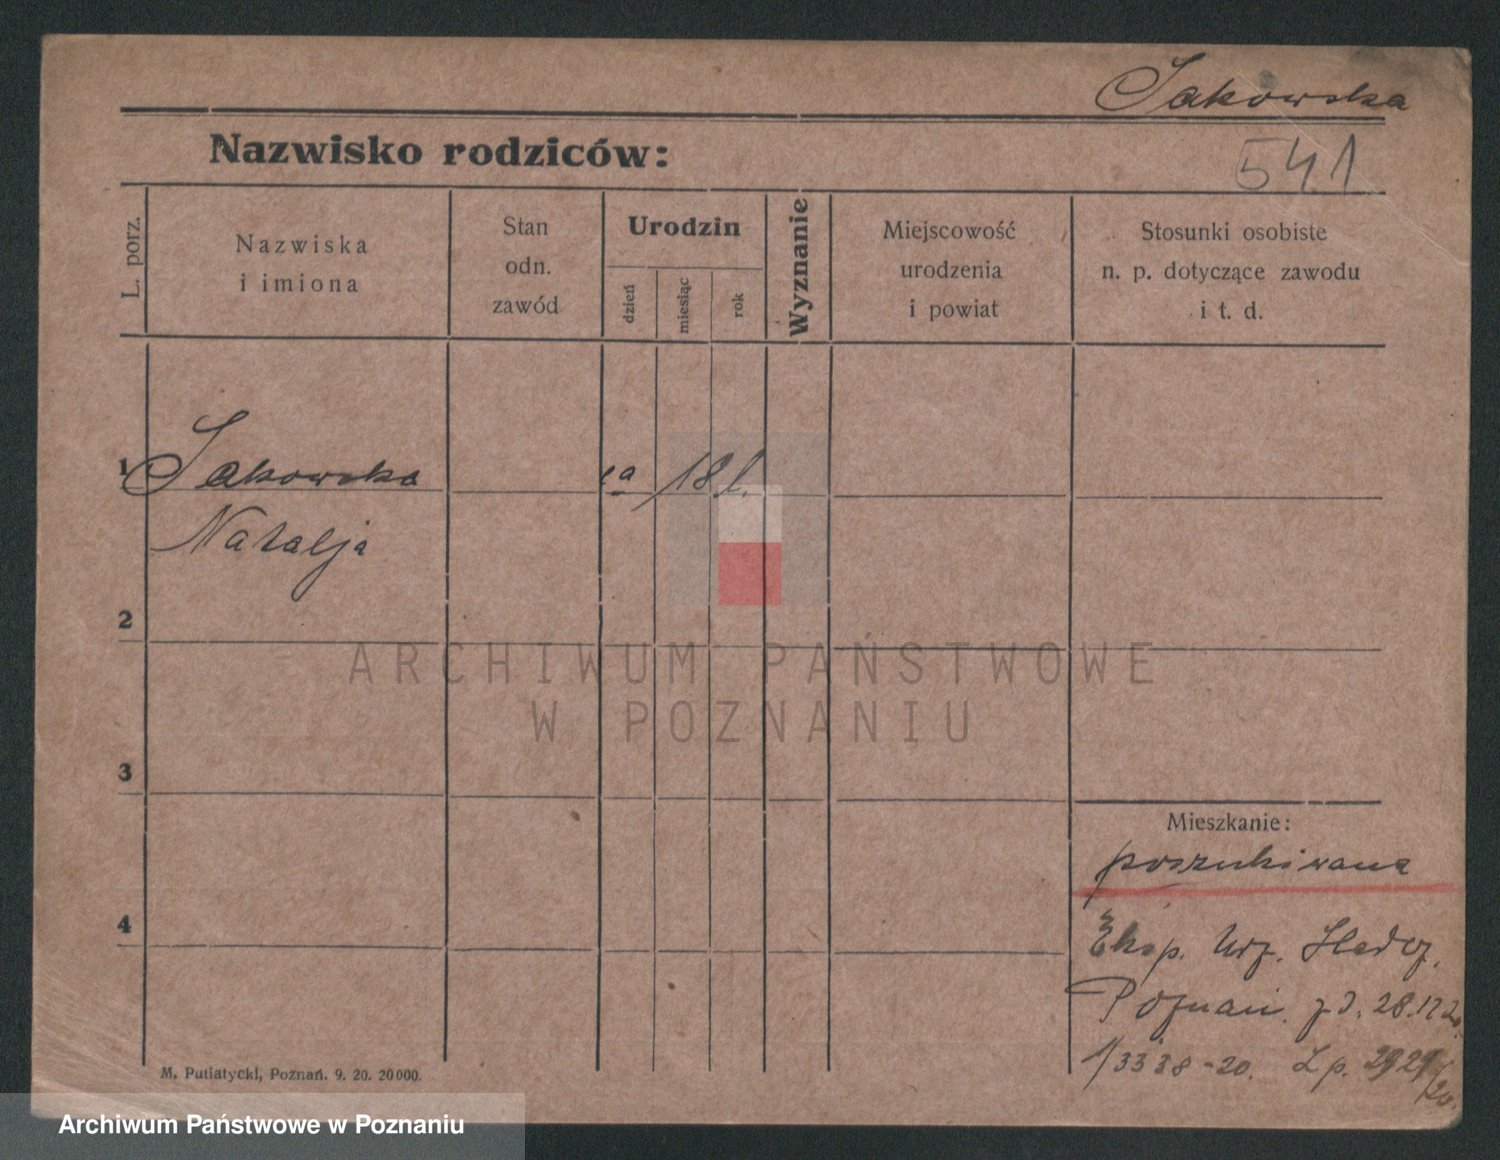 Jakowska
Nazwisko rodziców:
541
L. porz.
Nazwiska
i imiona
Stan
odn.
zawód
Urodzin
dzień
miesiąc
rok
Wyznanie
Miejscowość
urodzenia
i powiat
Stosunki osobiste
n. p. dotyczące zawodu
i t. d.
1 Jakowska ca 18 l.
Natalja
2
ARCHIWUM PAŃSTWOWE
W POZNANIU
3
Mieszkanie:
poszukiwana
4
Eksp. Urz. Śledcz.
Poznań z d. 28.12 20.
1/3338-20. L p.
M. Putiatycki, Poznań. 9. 20. 20000.
Archiwum Państwowe w Poznaniu